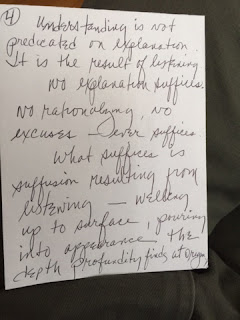 4
Understanding is not
predicated on explanation.
It is the result of listening
No explanation suffices.
No rationalizing, no
excuses – ever suffice.
What suffices is
suffusion resulting from
listening – welling
up to surface, pouring
into appearance the
depth profundity finds at Origin.